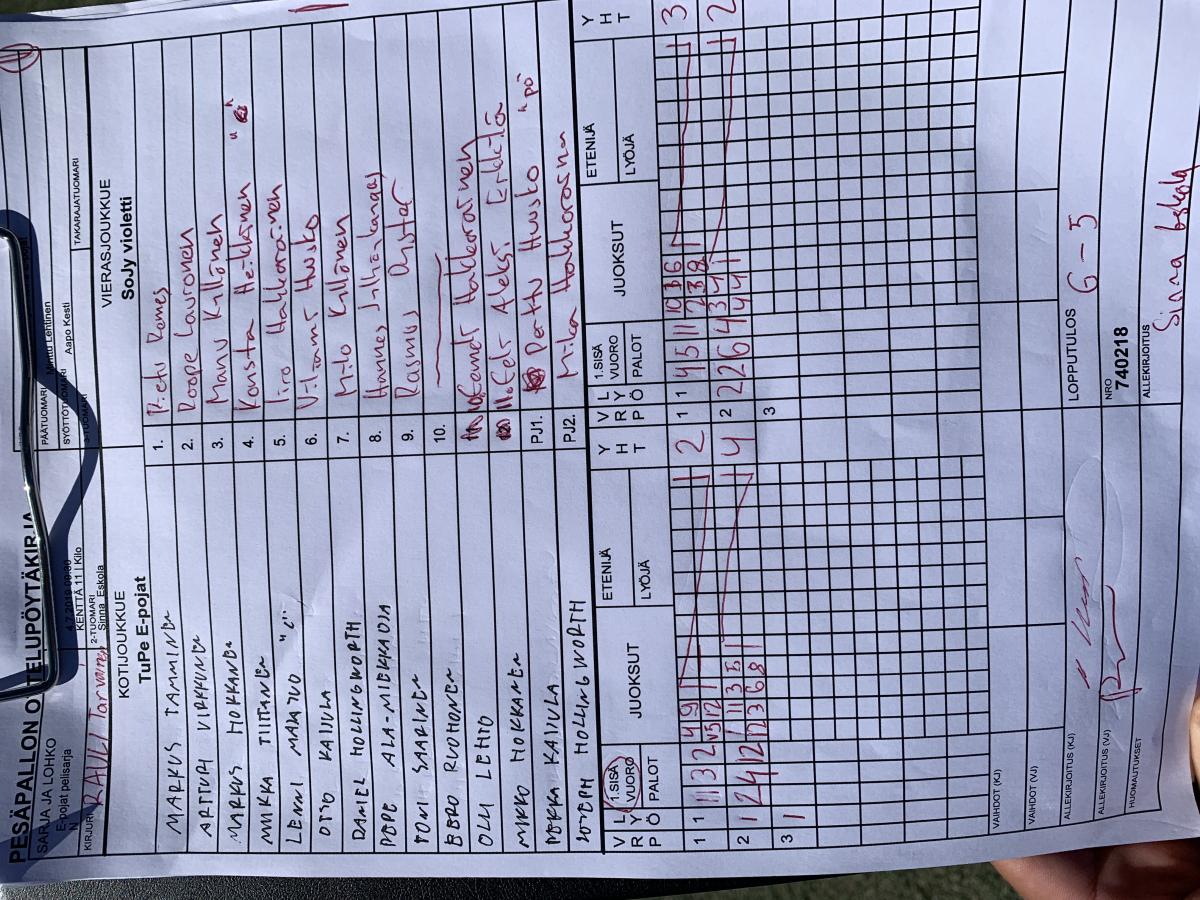 PESÄPALLON OTTELUPÖYTÄKIRJA
SARJA JA LOHKO
E-pojat pelisarja
N
KENTTÄ 11 I Kilo
PÄÄTUOMARI Minttu Lehtinen
SYÖTTÖTUOMARI Aapo Kesti
KIRJURI RAULI Torvainen
2-TUOMARI
Sinna Eskola
3-TUOMARI
TAKARAJATUOMARI
KOTIJOUKKUE
TuPe E-pojat
VIERASJOUKKUE
SoJy violetti
MARKUS TAMMINEN
1. Richi Rames
ARTTURI VIRKKUNEN
2. Roope Lauronen
MARKUS HOKKANEN
3. Manu Killönen
MIIKKA TIITTANEN
4. Konsta Heikkinen
LENNI MAATUO "C"
5. Iiro Hakkorainen
OTTO KAIJULA
6. Viltami Husko
DANIEL HOLLINGWORTH
7. Milo Killönen
PEPE ALA-MIEKKAOJA
8. Hannes Julhonkangas
TONI SAARINEN
9. Rasmus
EERO RUOHONEN
10.
OLLI LEHTO
Eemeli Hakkorainen
Aleksi Erkkilä
MIKKO HOKKANEN
PJ1. Perttu Husko "pö"
PEKKA KAIJULA
PJ2. Mika Hakkorainen
JOSEPH HOLLINGWORTH
V R P
L Y Ö
1.SISÄ VUORO
PALOT
JUOKSUT
ETENIJÄ
LYÖJÄ
Y H T
V R P
L Y Ö
1.SISÄ VUORO
PALOT
JUOKSUT
ETENIJÄ
LYÖJÄ
Y H T
1 1 11 3 2 4 9
15 12
2
1 1 4 5 11 10 3 6
11 7 3 8
3
2 1 2 4 12 1 1 3 5
12 3 6 8
4
2 2 2 6 4 3 4 1
4 4
2
3 1
3
VAIHDOT (KJ)
VAIHDOT (VJ)
ALLEKIRJOITUS (KJ)
LOPPUTULOS
6 - 5
ALLEKIRJOITUS (VJ)
NRO
740218
HUOMAUTUKSET
ALLEKIRJOITUS
Sinna Eskola